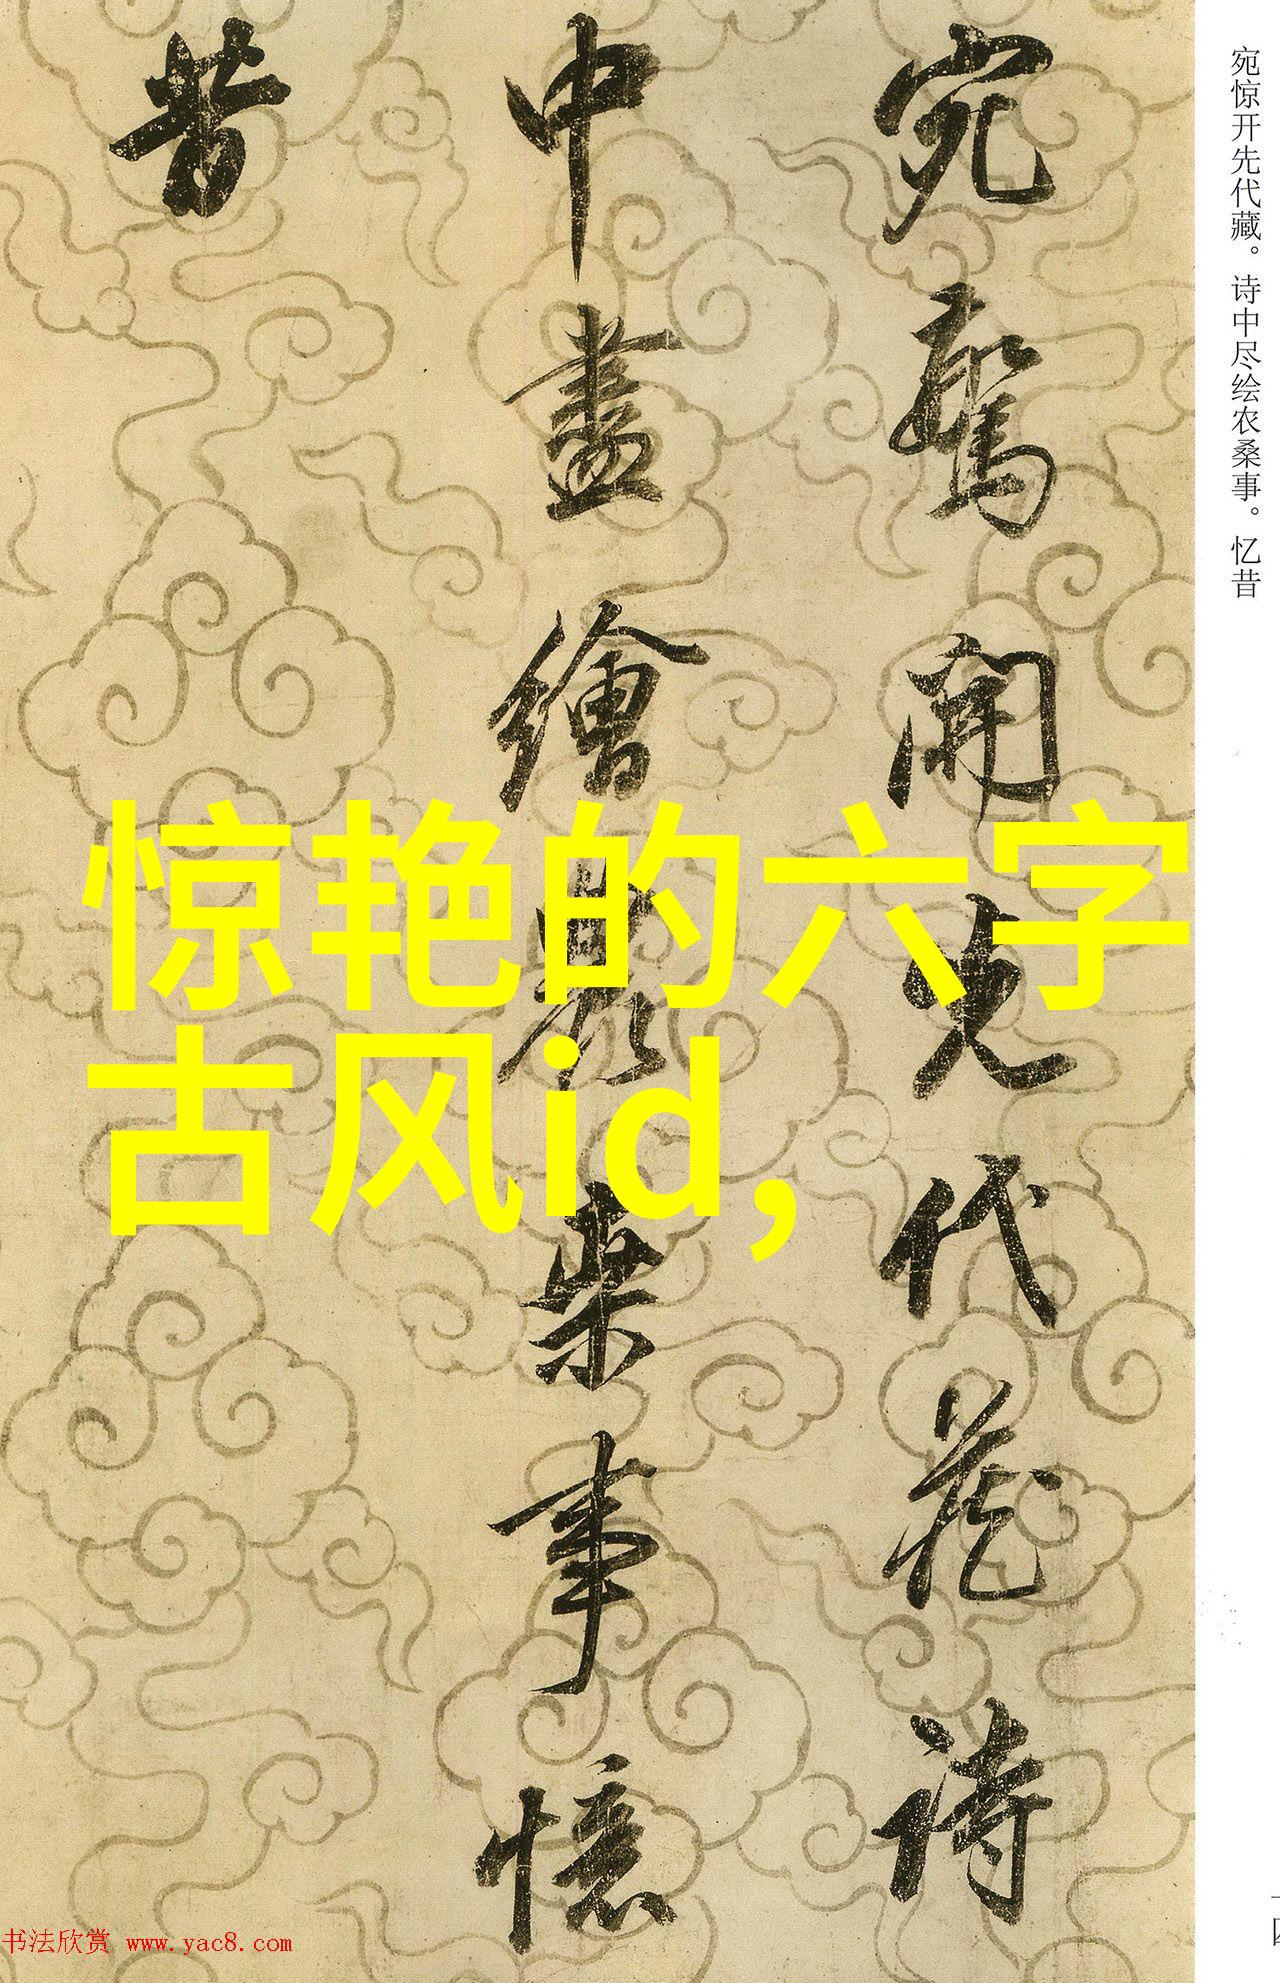 宛驚開先代藏詩
中盡繪農桑事憶
昔
宛惊开先代藏。诗中尽绘农桑事。忆昔
惊艳的六字
古风id,
书法欣赏 www.yac8.com